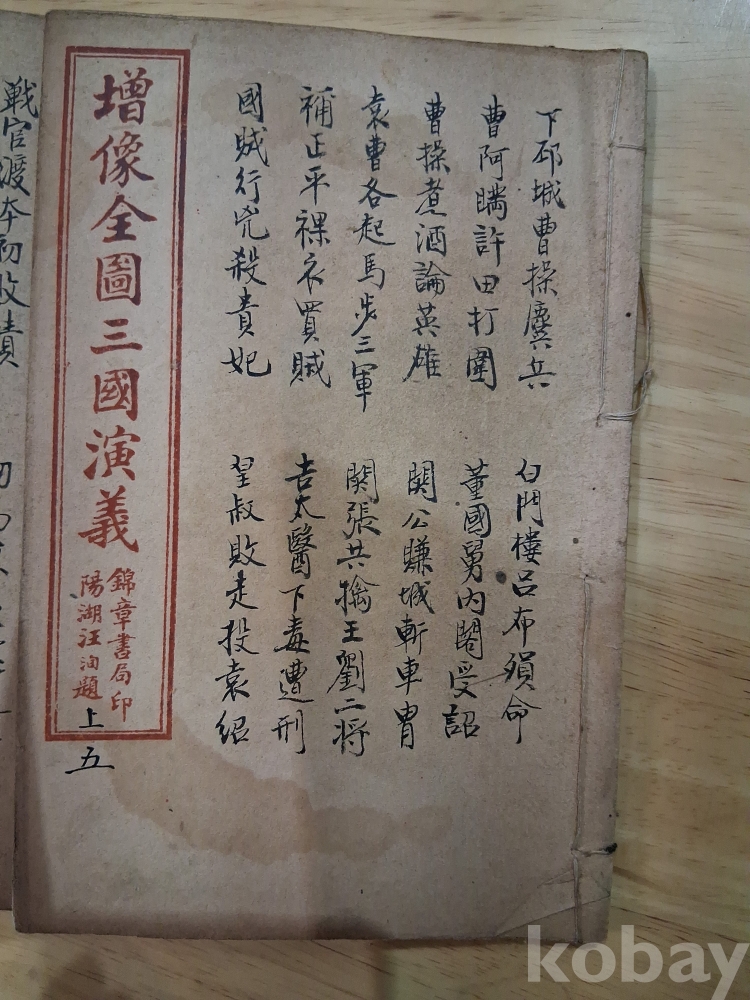 下邳城曹操鏖兵 白門樓呂布殞命
曹阿瞞許田打圍 董國舅內閣受詔
曹操煮酒論英雄 関公賺城斬車冑
袁曹各起馬步三軍 関張共擒王劉二将
補正平裸衣買賊 吉太醫下毒遭刑
國賊行兇殺貴妃 皇叔敗走投袁紹
增像全圖三國演義
錦章書局印
陽湖汪洵題
上
五
戰官渡本初敗績
kobay